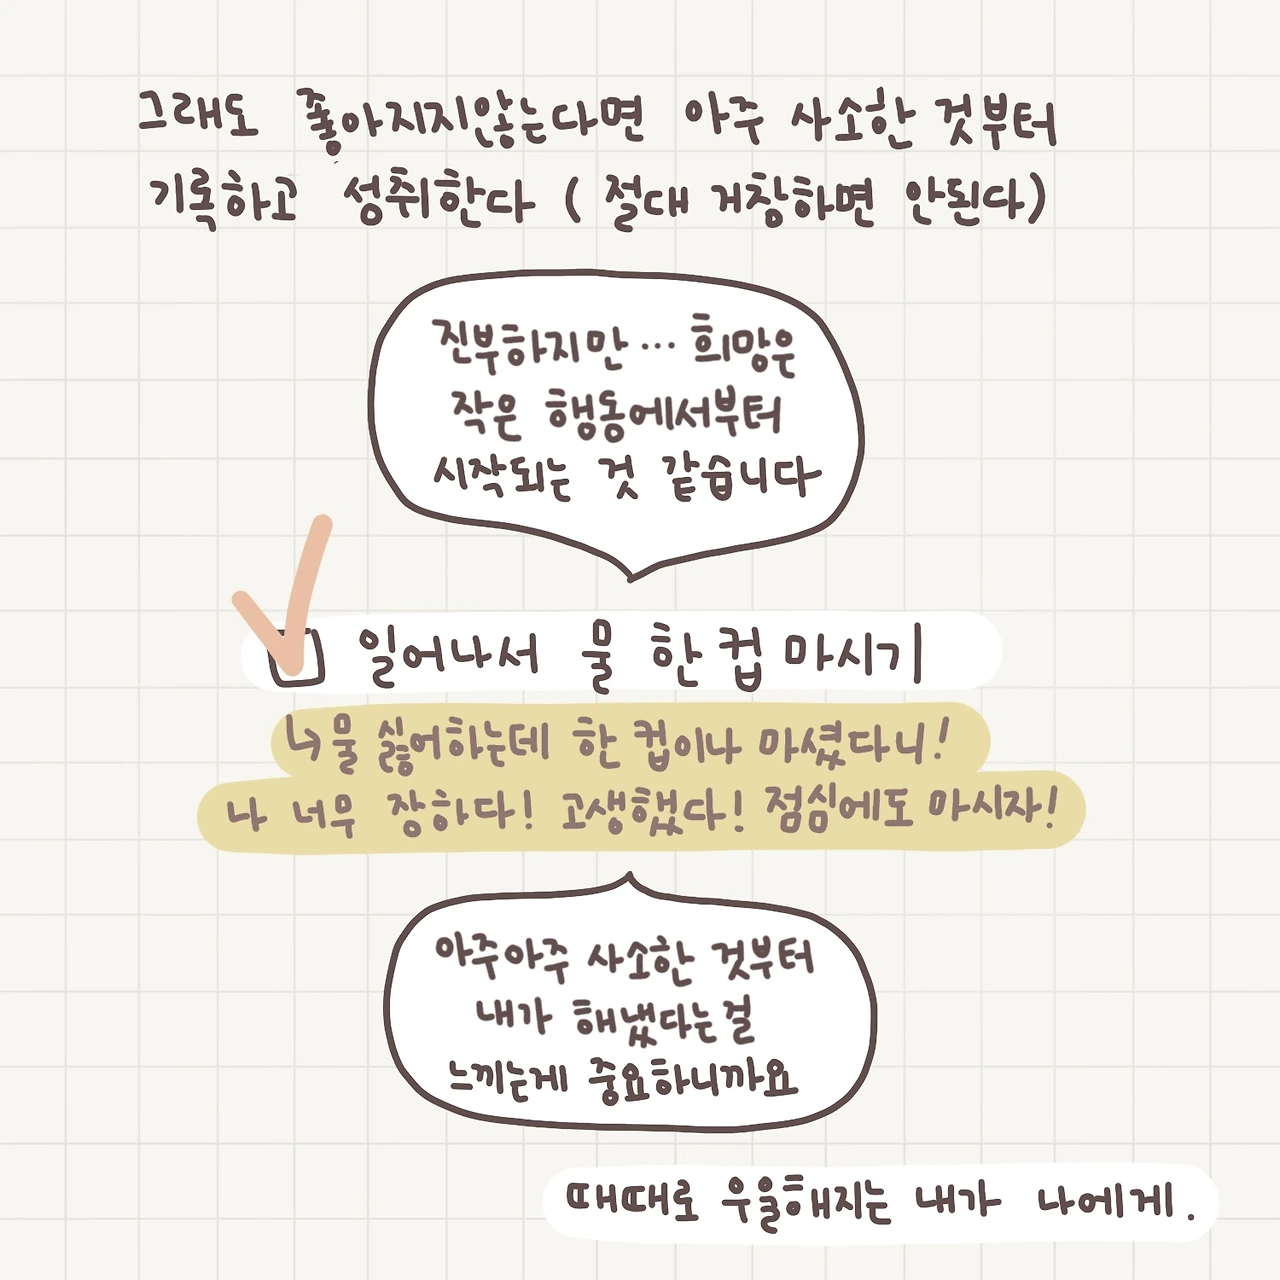 그래도 좋아지지않는다면 아주 사소한 것부터
기록하고 성취한다 ( 절대 거창하면 안된다)
진부하지만··· 희망은
작은 행동에서부터
시작되는 것 같습니다
일어나서 물 한 컵 마시기
↳물 싫어하는데 한 컵이나 마셨다니!
나 너무 장하다! 고생했다! 점심에도 마시자!
아주아주 사소한 것부터
내가 해냈다는걸
느끼는게 중요하니까요
때때로 우울해지는 내가 나에게.